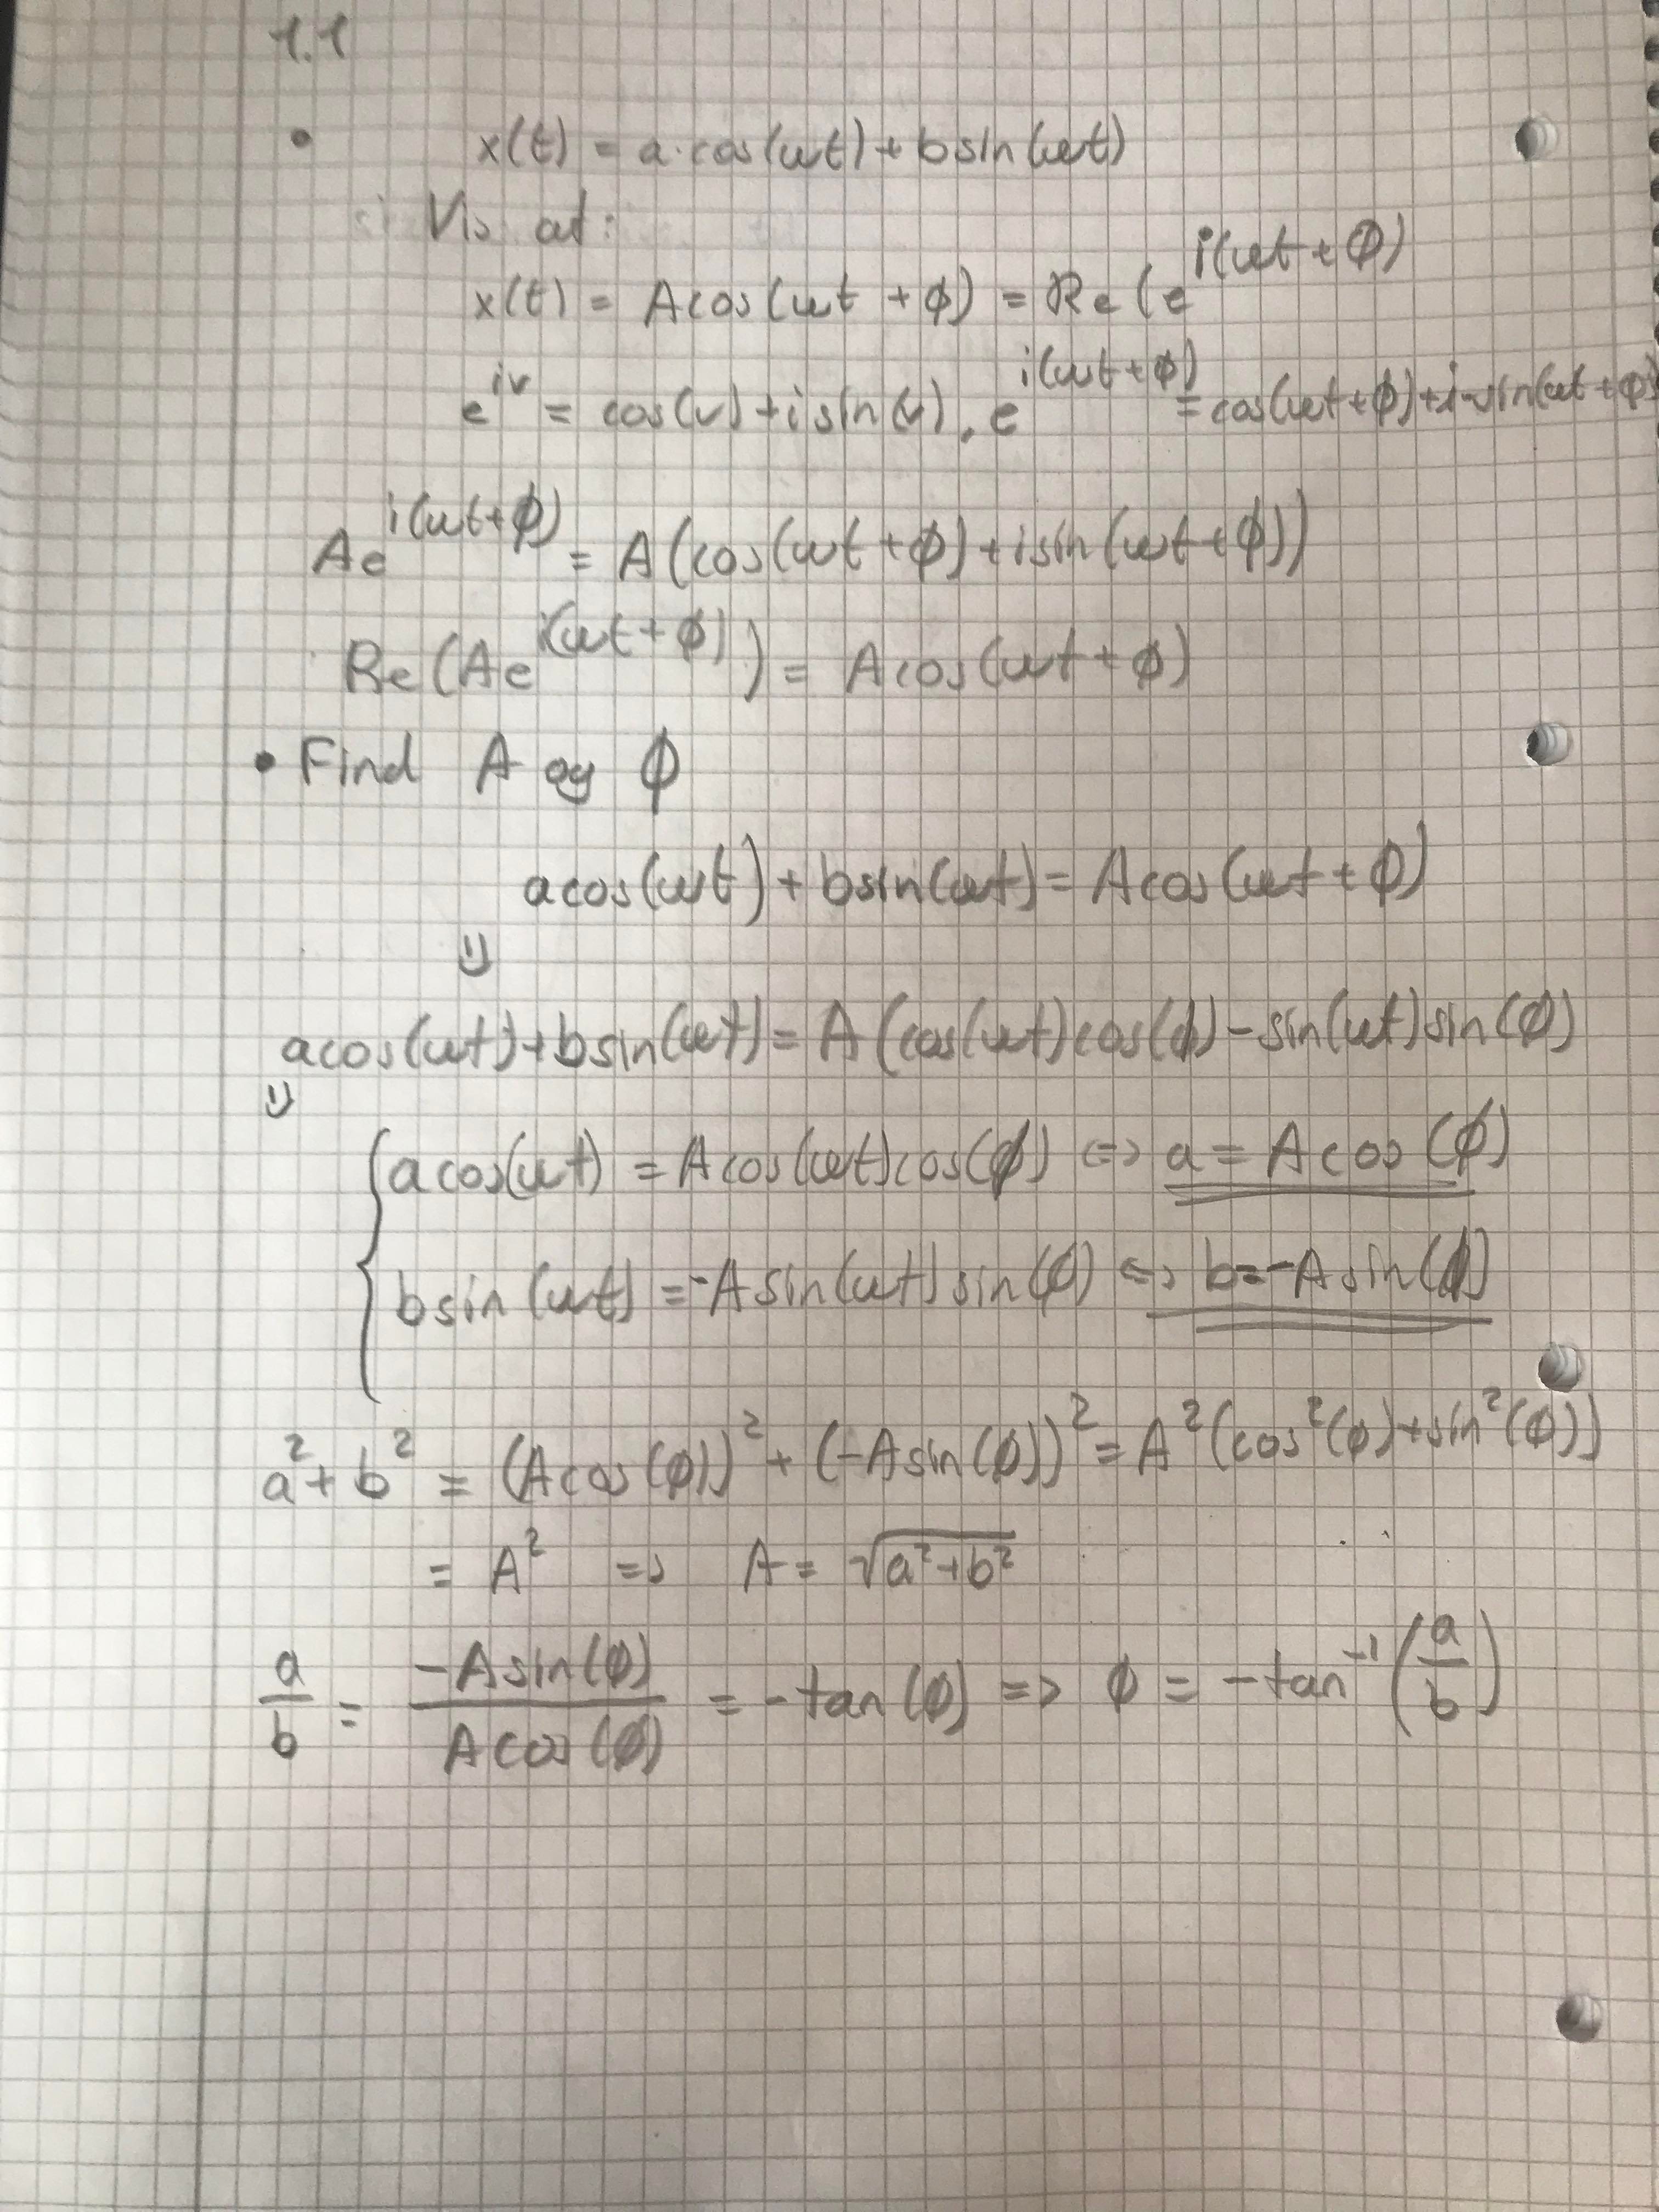 1.1
• x(t) = a·cos(ωt) + b sin(ωt)
Vis at:
x(t) = A cos(ωt + ϕ) = Re(e^{i(ωt + ϕ)}
e^{iv} = cos(v) + i sin(v), e^{i(ωt+ϕ)} = cos(ωt+ϕ) + i·sin(ωt+ϕ)
Ae^{i(ωt+ϕ)} = A(cos(ωt+ϕ) + i sin(ωt+ϕ))
Re(Ae^{i(ωt+ϕ)}) = A cos(ωt+ϕ)
• Find A og ϕ
a cos(ωt) + b sin(ωt) = A cos(ωt + ϕ)
⇓
a cos(ωt) + b sin(ωt) = A(cos(ωt) cos(ϕ) − sin(ωt) sin(ϕ)
⇓
{ a cos(ωt) = A cos(ωt) cos(ϕ) ⇔ a = A cos(ϕ)
b sin(ωt) = -A sin(ωt) sin(ϕ) ⇔ b = -A sin(ϕ)
a² + b² = (A cos(ϕ))² + (-A sin(ϕ))² = A²(cos²(ϕ) + sin²(ϕ))
= A² ⇒ A = √(a²+b²)
a/b = -A sin(ϕ)/A cos(ϕ) = -tan(ϕ) ⇒ ϕ = -tan⁻¹(a/b)